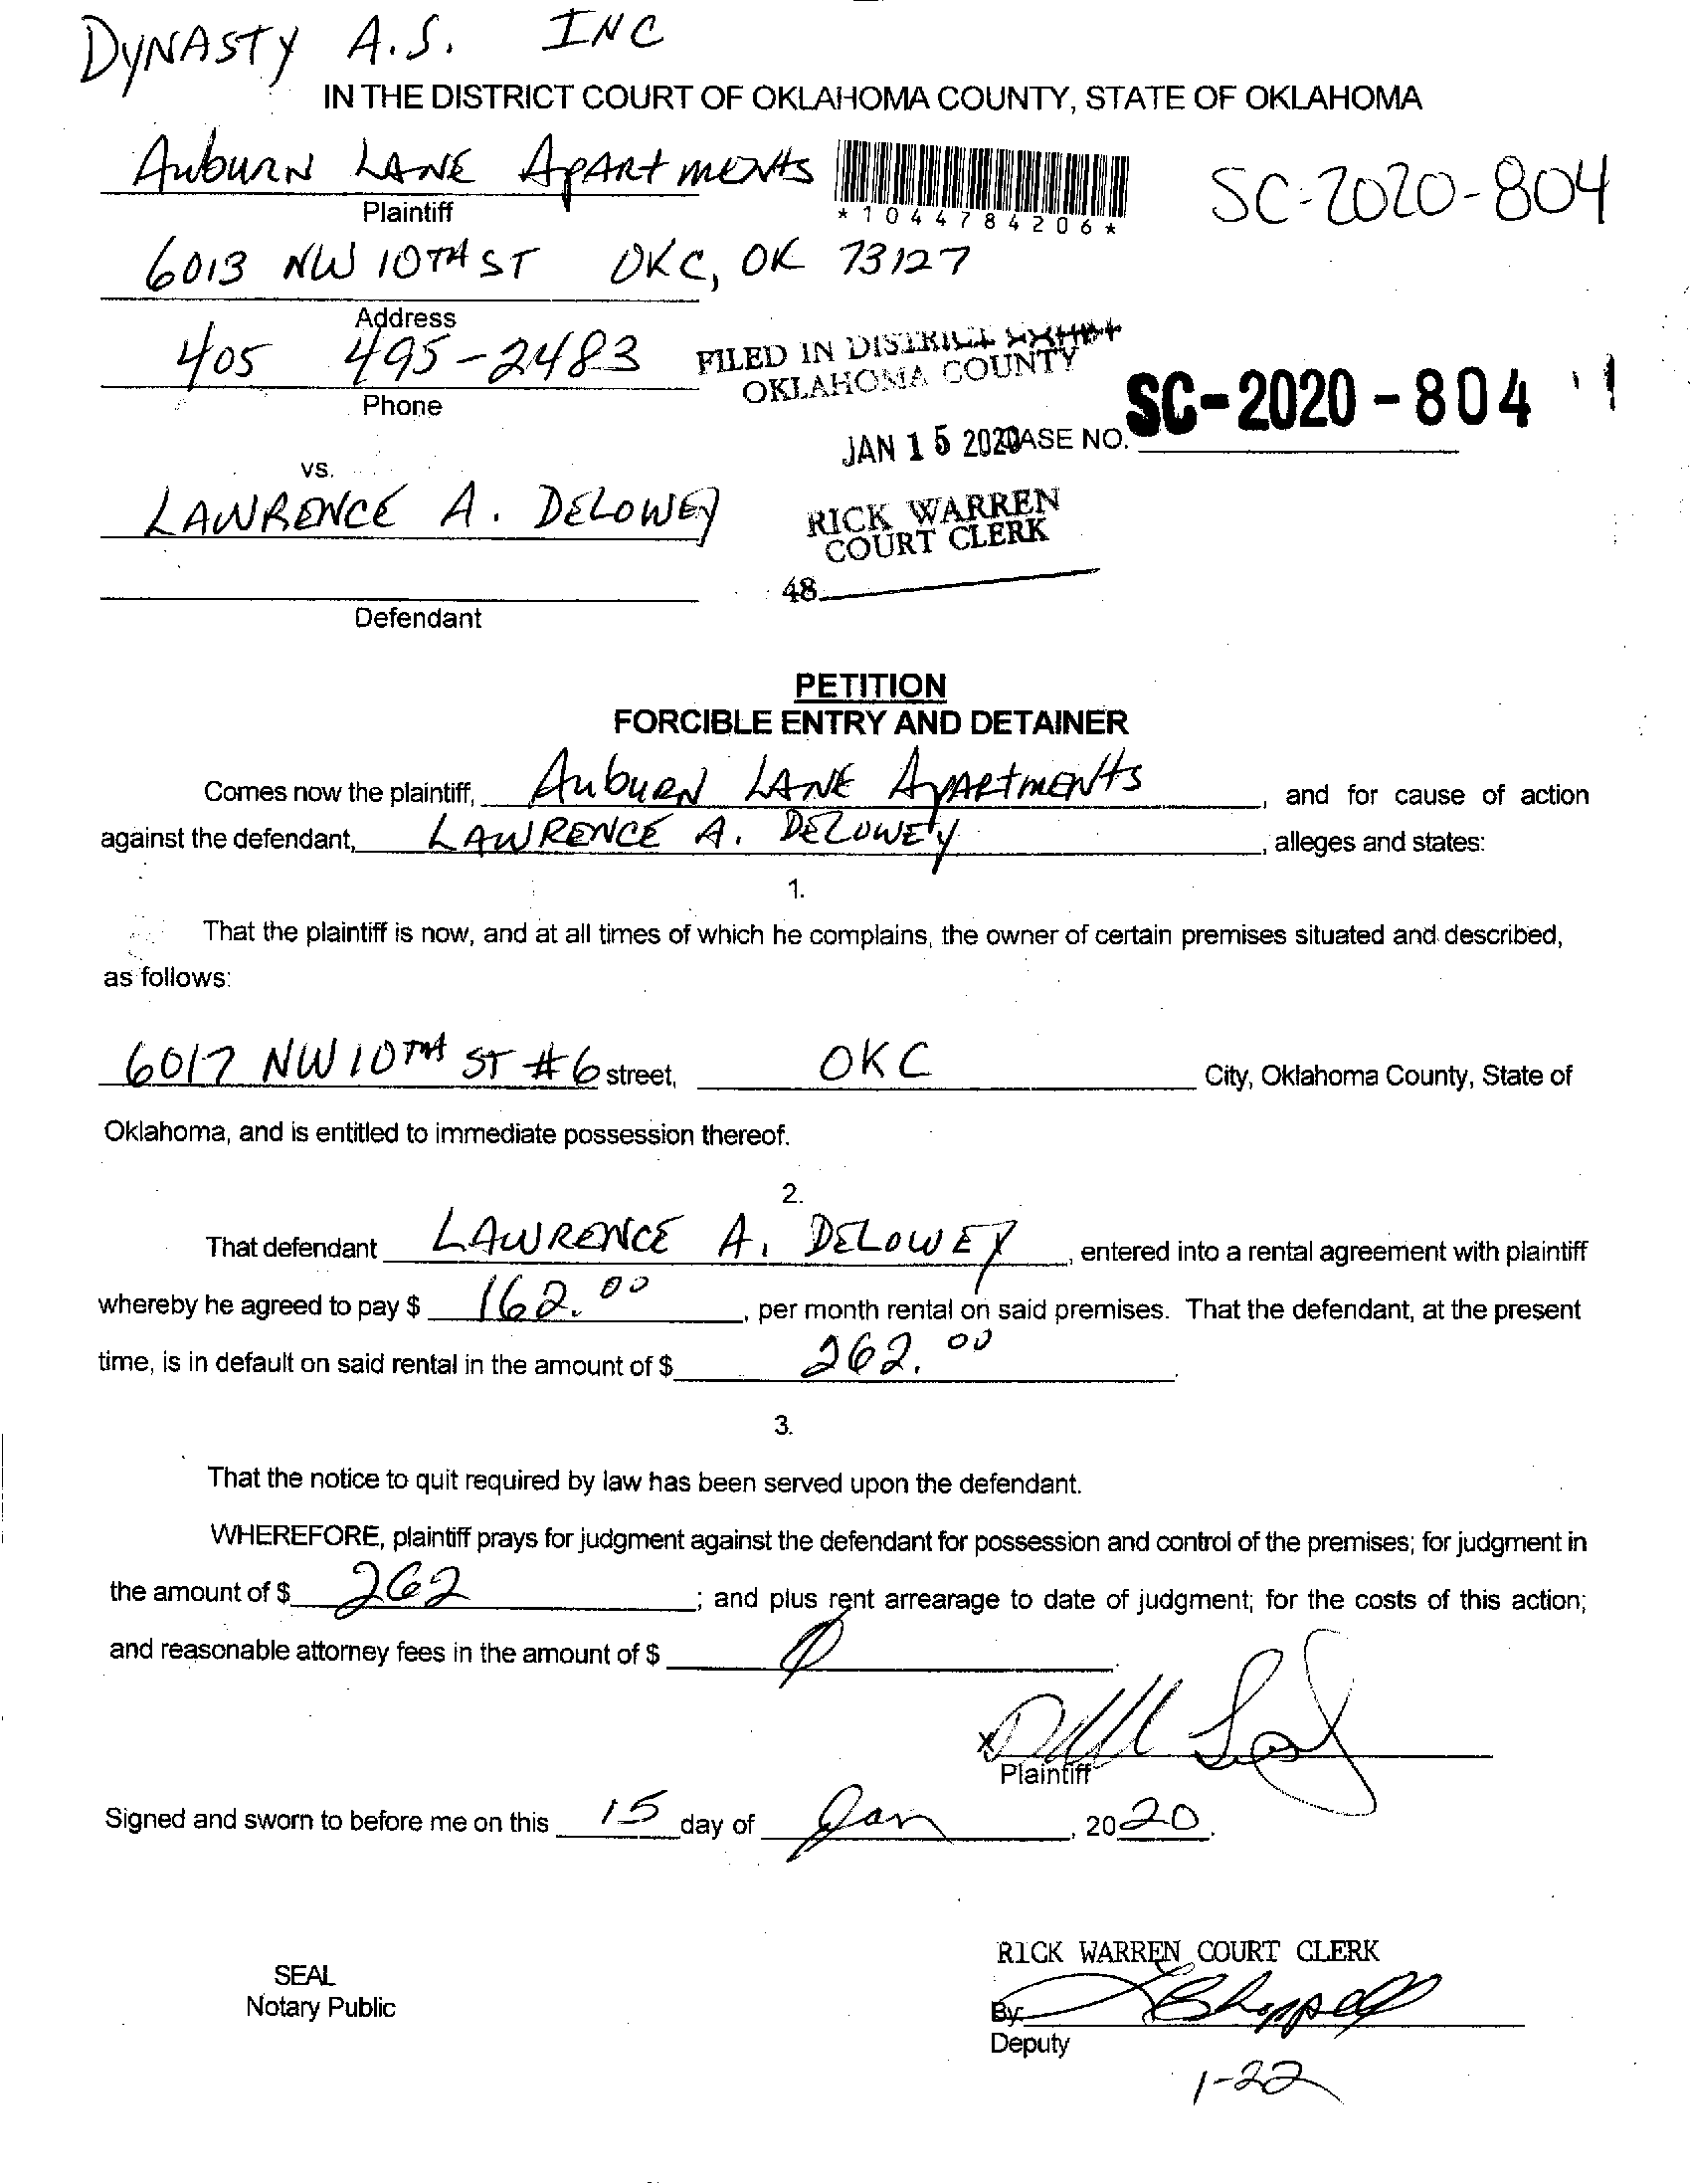 DYNASTY A.S. INC
IN THE DISTRICT COURT OF OKLAHOMA COUNTY, STATE OF OKLAHOMA
AubuRN LANE ApARtmeNts
Plaintiff
*1044784206*
SC-2020-804
6013 NW 10TH ST OKC, OK 73127
Address
405 495-2483
Phone
FILED IN DISTRICT
OKLAHOMA COUNTY
JAN 15 2020
CASE NO. SC-2020-804
vs.
LAWRENCE A. DELOWEY
RICK WARREN
COURT CLERK
48
Defendant
PETITION
FORCIBLE ENTRY AND DETAINER
Comes now the plaintiff, AubuRN LANE ApARtmeNts, and for cause of action
against the defendant, LAWRENCE A. DELOWEY, alleges and states:
1.
That the plaintiff is now, and at all times of which he complains, the owner of certain premises situated and described,
as follows:
6017 NW 10TH ST #6 street, OKC City, Oklahoma County, State of
Oklahoma, and is entitled to immediate possession thereof.
2.
That defendant LAWRENCE A. DELOWEY, entered into a rental agreement with plaintiff
whereby he agreed to pay $ 162.00, per month rental on said premises. That the defendant, at the present
time, is in default on said rental in the amount of $ 262.00.
3.
That the notice to quit required by law has been served upon the defendant.
WHEREFORE, plaintiff prays for judgment against the defendant for possession and control of the premises; for judgment in
the amount of $ 262; and plus rent arrearage to date of judgment; for the costs of this action;
and reasonable attorney fees in the amount of $ Ø.
X
Plaintiff
Signed and sworn to before me on this 15 day of Jan, 2020.
RICK WARREN COURT CLERK
SEAL
Notary Public
By:
Deputy
1-22